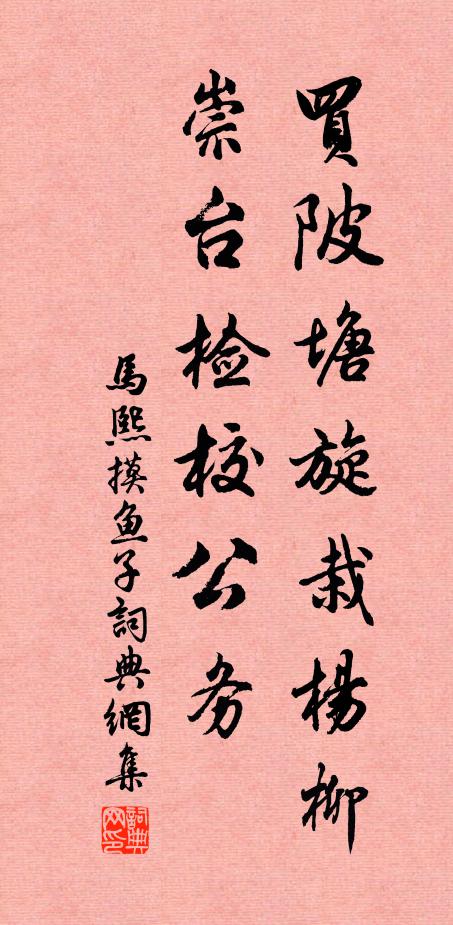 買陂塘旋栽楊柳
崇台检校公务
馬熙摸鱼子詞典網集
詞典网印